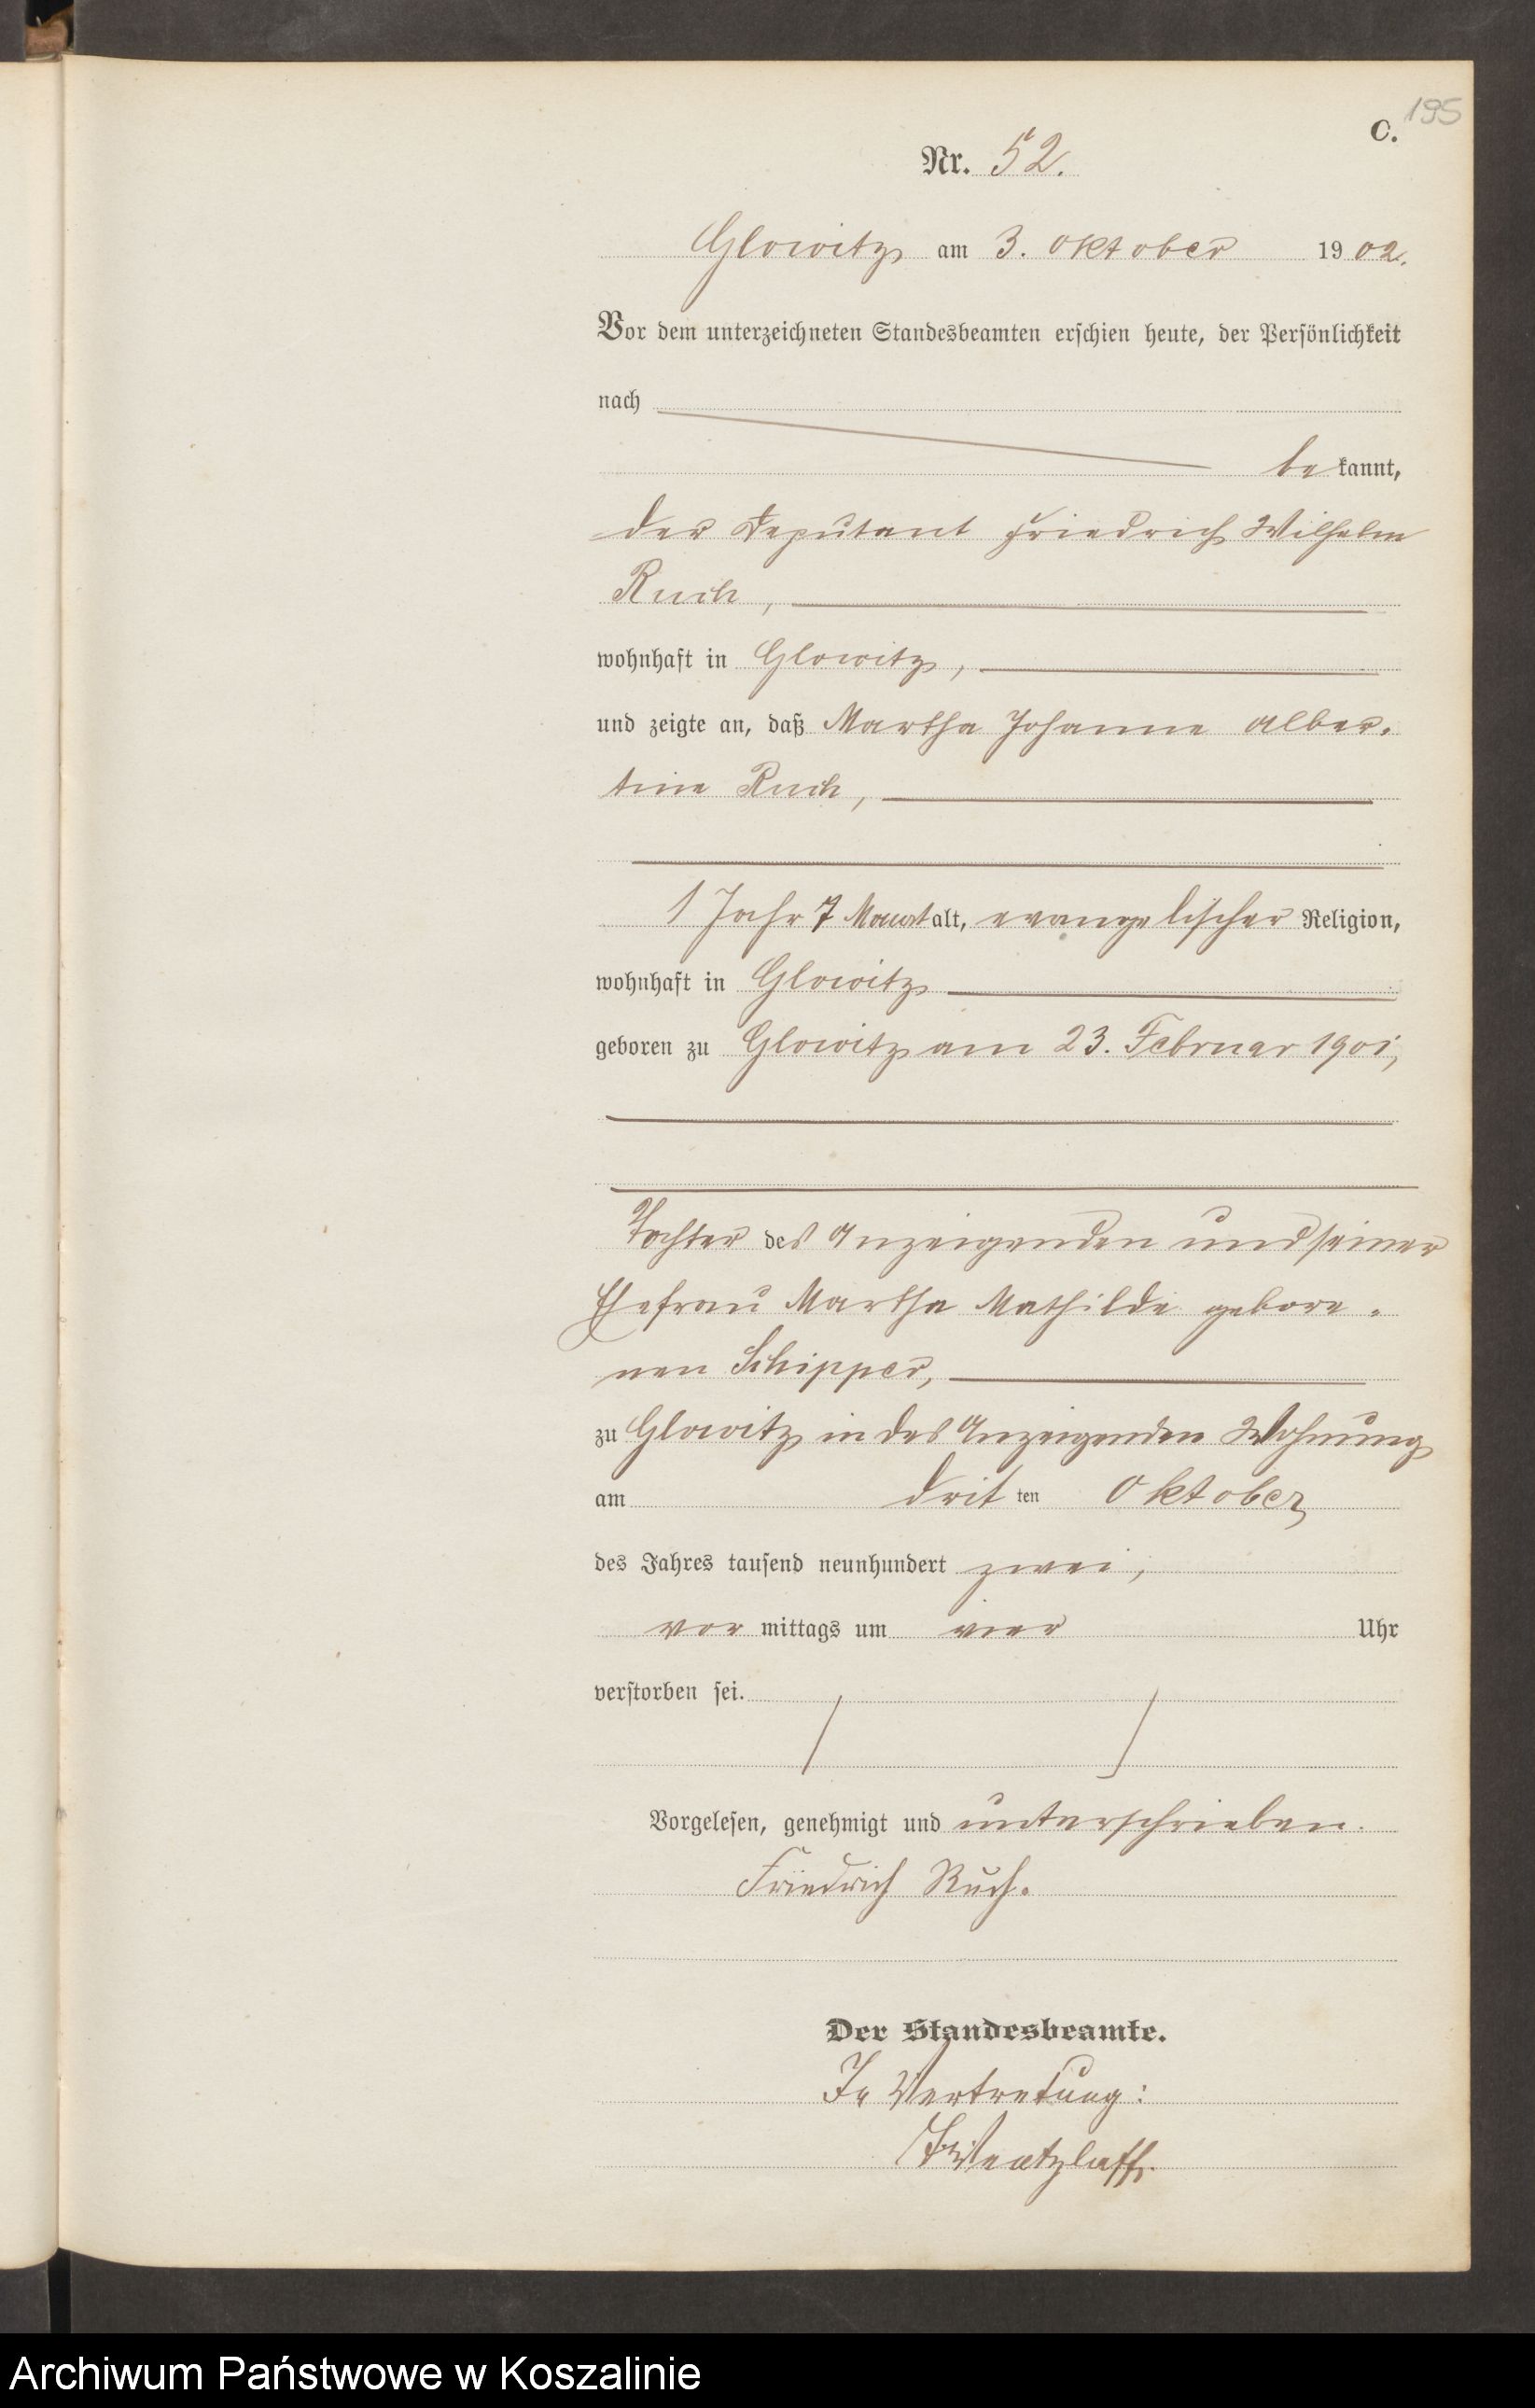 195
C.
Nr. 52.
Glowitz am 3. Oktober 1902.
Vor dem unterzeichneten Standesbeamten erschien heute, der Persönlichkeit
nach
bekannt,
der Deputant Friedrich Wilhelm
Ruch,
wohnhaft in Glowitz,
und zeigte an, daß Martha Johanne Alber-
tine Ruch,
1 Jahr 7 Monat alt, evangelischer Religion,
wohnhaft in Glowitz
geboren zu Glowitz am 23. Februar 1901,
Tochter des Anzeigenden und seiner
Ehefrau Martha Mathilde gebore-
nen Schipper,
zu Glowitz in des Anzeigenden Wohnung
am dritten Oktober
des Jahres tausend neunhundert zwei,
vor mittags um vier Uhr
verstorben sei.
Vorgelesen, genehmigt und unterschrieben.
Friedrich Ruch.
Der Standesbeamte.
In Vertretung:
Wentzlaff.
Archiwum Państwowe w Koszalinie